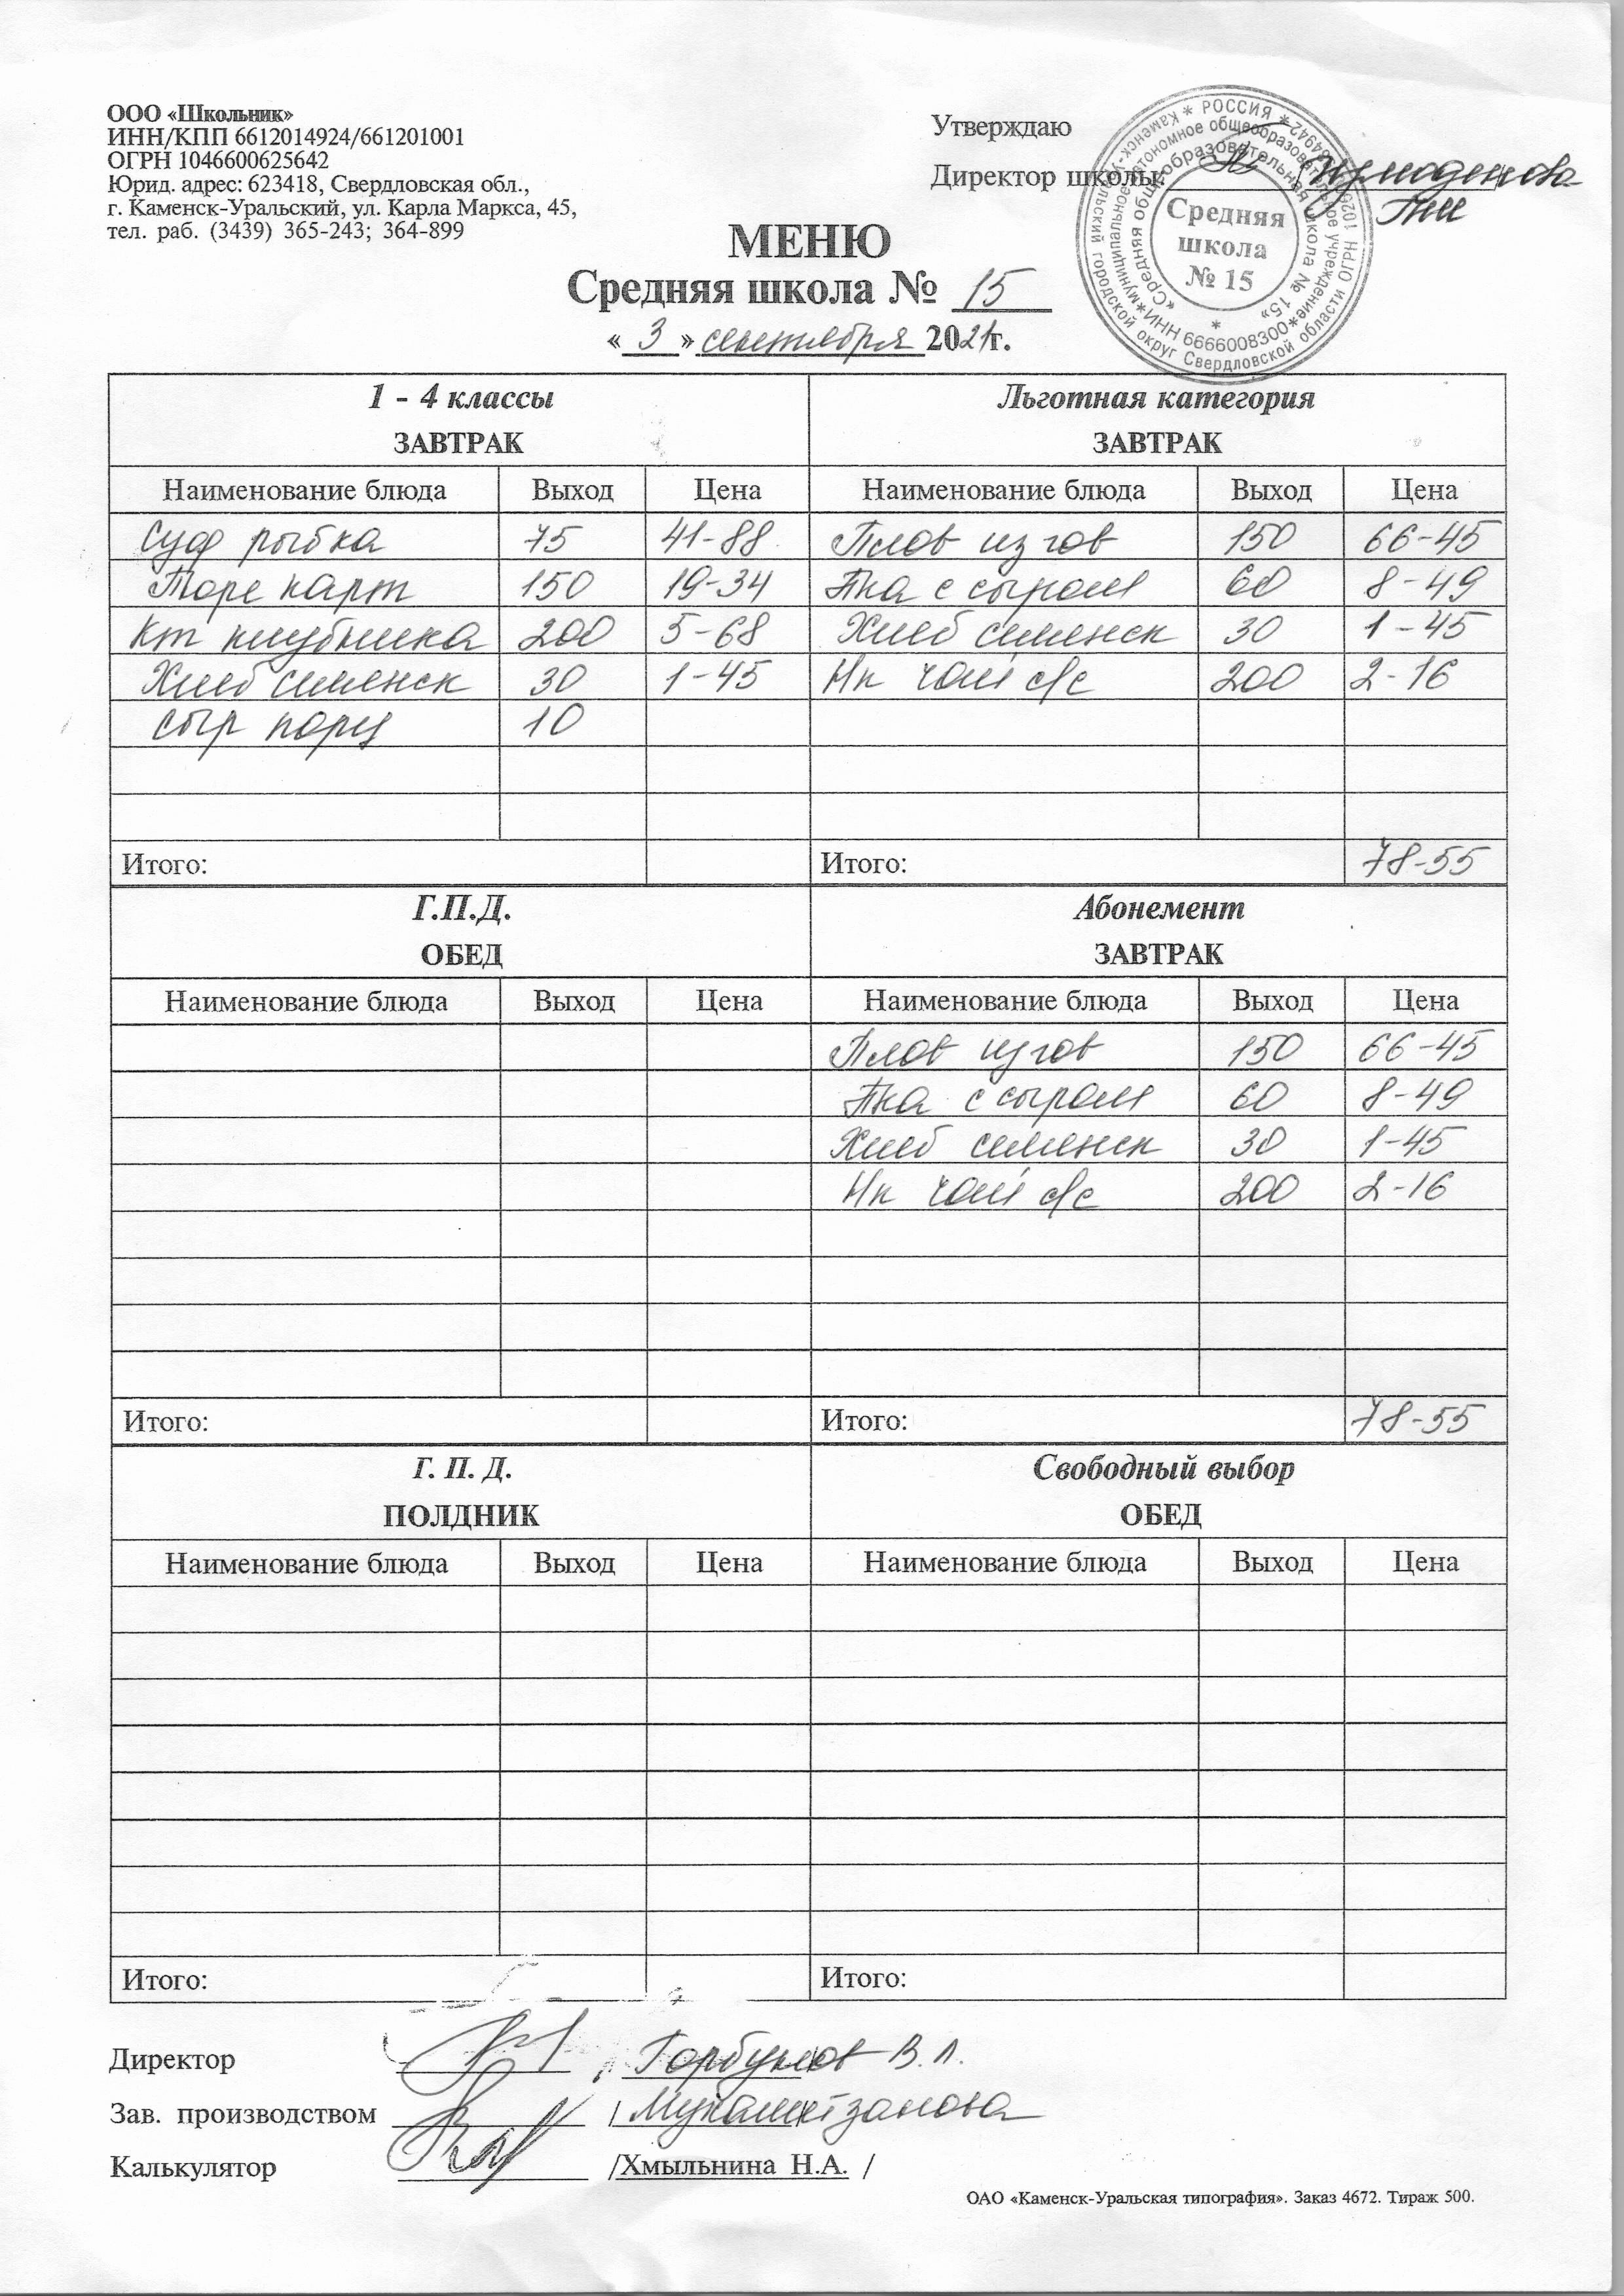 ООО «Школьник»
ИНН/КПП 6612014924/661201001
ОГРН 1046600625642
Юрид. адрес: 623418, Свердловская обл.,
г. Каменск-Уральский, ул. Карла Маркса, 45,
тел. раб. (3439) 365-243; 364-899
Утверждаю
Директор школы:
Средняя
школа
№ 15
МЕНЮ
Средняя школа № 15
« 3 » сентября 2021г.
1 - 4 классы
ЗАВТРАК
Льготная категория
ЗАВТРАК
Наименование блюда Выход Цена Наименование блюда Выход Цена
Суф рыбка 75 41-88 Плов из гов 150 66-45
Пюре карт 150 19-34 Пка с сыром 60 8-49
Кт клубника 200 5-68 Хлеб семенск 30 1-45
Хлеб семенск 30 1-45 Нк чай с/с 200 2-16
Сыр порц 10
Итого: Итого: 78-55
Г.П.Д.
ОБЕД
Абонемент
ЗАВТРАК
Наименование блюда Выход Цена Наименование блюда Выход Цена
Плов из гов 150 66-45
Пка с сыром 60 8-49
Хлеб семенск 30 1-45
Нк чай с/с 200 2-16
Итого: Итого: 78-55
Г. П. Д.
ПОЛДНИК
Свободный выбор
ОБЕД
Наименование блюда Выход Цена Наименование блюда Выход Цена
Итого: Итого:
Директор Горбунов В.Л.
Зав. производством / Мухаметзанова
Калькулятор /Хмыльнина Н.А. /
ОАО «Каменск-Уральская типография». Заказ 4672. Тираж 500.